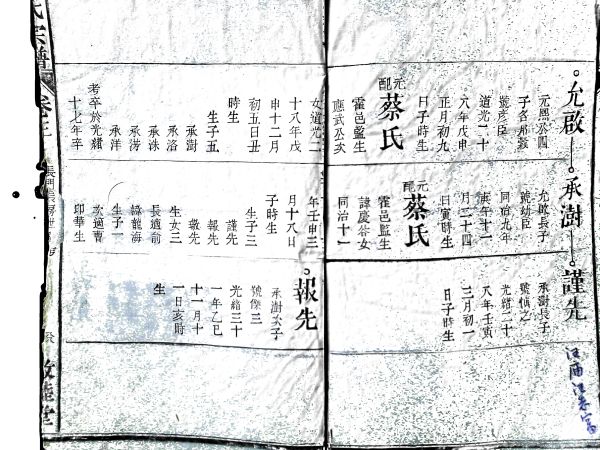 允啟
元熙公四
子名邦毅
號彦臣
道光二十
八年戊申
正月初九
日子時生
元配
蔡氏
霍邑監生
應武公次
女道光二
十八年戊
申十二月
初五日丑
時生
生子五
承澍
承洛
承洙
承涝
承洋
考卒於光緒
十七年卒
承澍
允啟長子
號幼臣
同治九年
庚午十一
月二十四
日寅時生
元配
蔡氏
霍邑監生
諱慶谷女
同治十一
年壬申三
月十八日
子時生
生子三
謹先
報先
生女三
長適前
諱龍海
生子一
次適曹
印華生
謹先
承澍長子
號慎之
光緒二十
八年壬寅
三月初一
日子時生
報先
承澍次子
號傑三
光緒三十
一年乙巳
十一月十
一日亥時
生
氏宗譜
卷三
敦睦堂